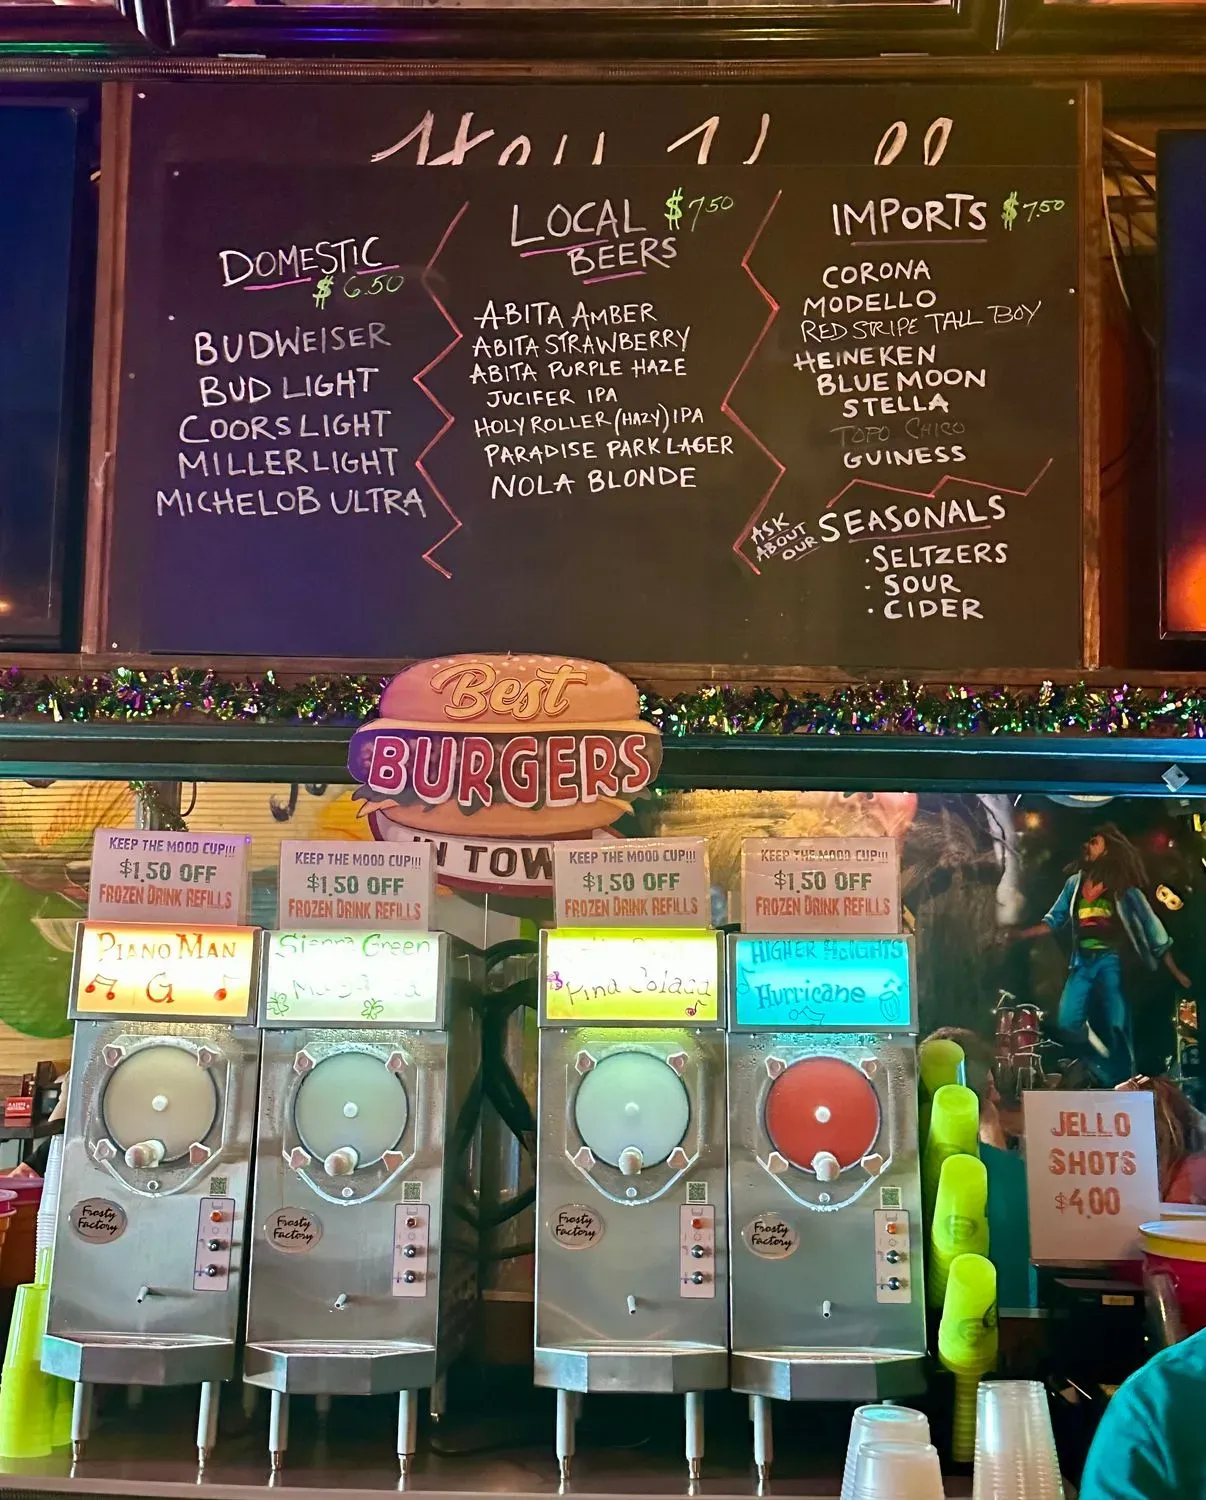 DOMESTIC
$6.50
BUDWEISER
BUD LIGHT
COORS LIGHT
MILLER LIGHT
MICHELOB ULTRA
LOCAL $7.50
BEERS
ABITA AMBER
ABITA STRAWBERRY
ABITA PURPLE HAZE
JUCIFER IPA
HOLY ROLLER (HAZY) IPA
PARADISE PARK LAGER
NOLA BLONDE
IMPORTS $7.50
CORONA
MODELLO
RED STRIPE TALL BOY
HEINEKEN
BLUE MOON
STELLA
TOPO CHICO
GUINESS
ASK
ABOUT
OUR
SEASONALS
· SELTZERS
· SOUR
· CIDER
Best
BURGERS
IN TOW
KEEP THE MOOD CUP!!!
$1.50 OFF
FROZEN DRINK REFILLS
KEEP THE MOOD CUP!!!
$1.50 OFF
FROZEN DRINK REFILLS
KEEP THE MOOD CUP!!!
$1.50 OFF
FROZEN DRINK REFILLS
KEEP THE MOOD CUP!!!
$1.50 OFF
FROZEN DRINK REFILLS
PIANO MAN
G
Sierra Green
Pina Colada
HIGHER HEIGHTS
Hurricane
Frosty
Factory
Frosty
Factory
Frosty
Factory
Frosty
Factory
JELLO
SHOTS
$4.00